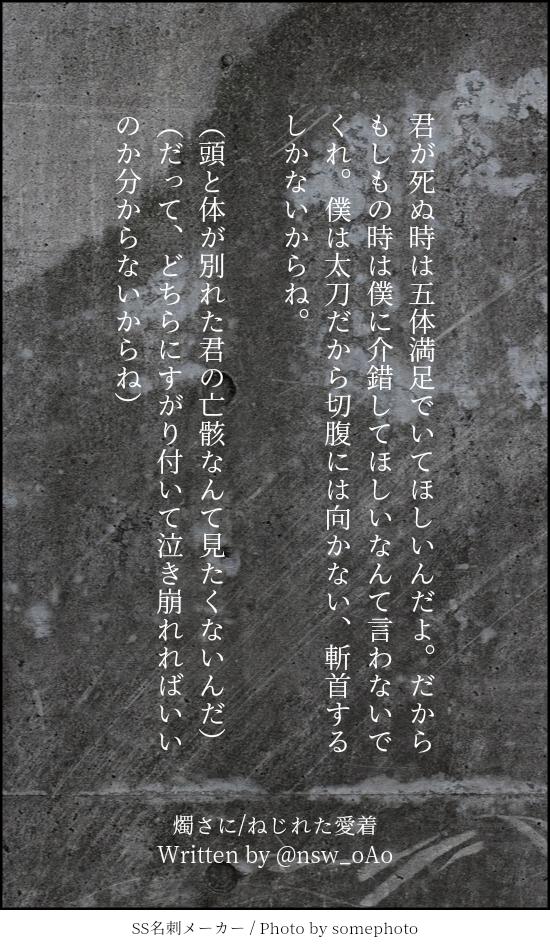 君が死ぬ時は五体満足でいてほしいんだよ。だから
もしもの時は僕に介錯してほしいなんて言わないで
くれ。僕は太刀だから切腹には向かない、斬首する
しかないからね。
(頭と体が別れた君の亡骸なんて見たくないんだ)
(だって、どちらにすがり付いて泣き崩れればいい
のか分からないからね)
燭さに/ねじれた愛着
Written by @nsw_oAo
SS名刺メーカー / Photo by somephoto